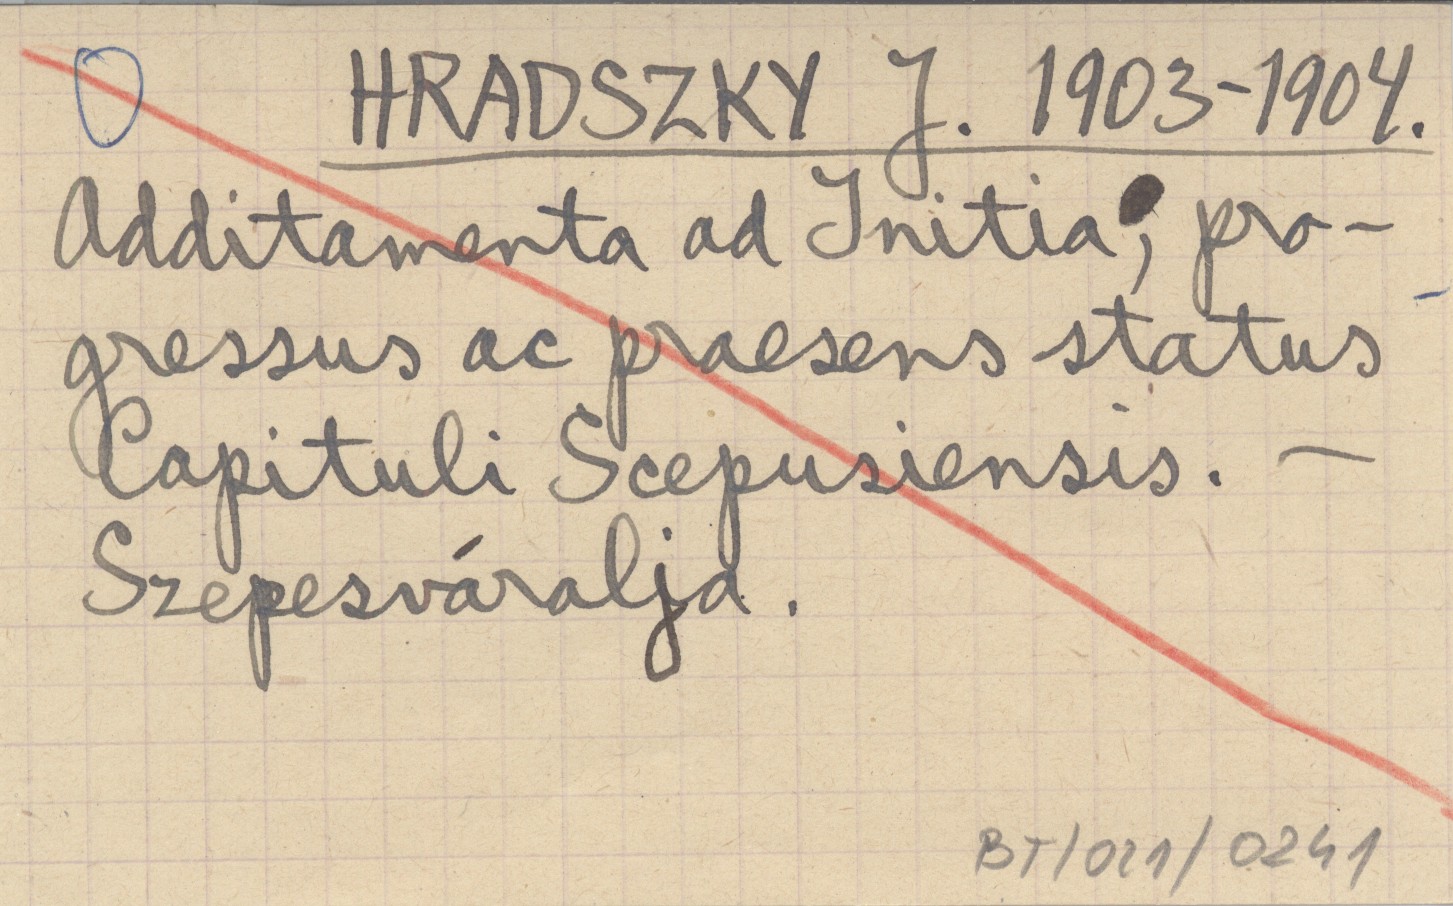 HRADSZKY J. 1903-1904.
Additamenta ad Initia, pro-
gressus ac praesens status
Capituli Scepusiensis. —
Szepesváralja.
BT/021/0241